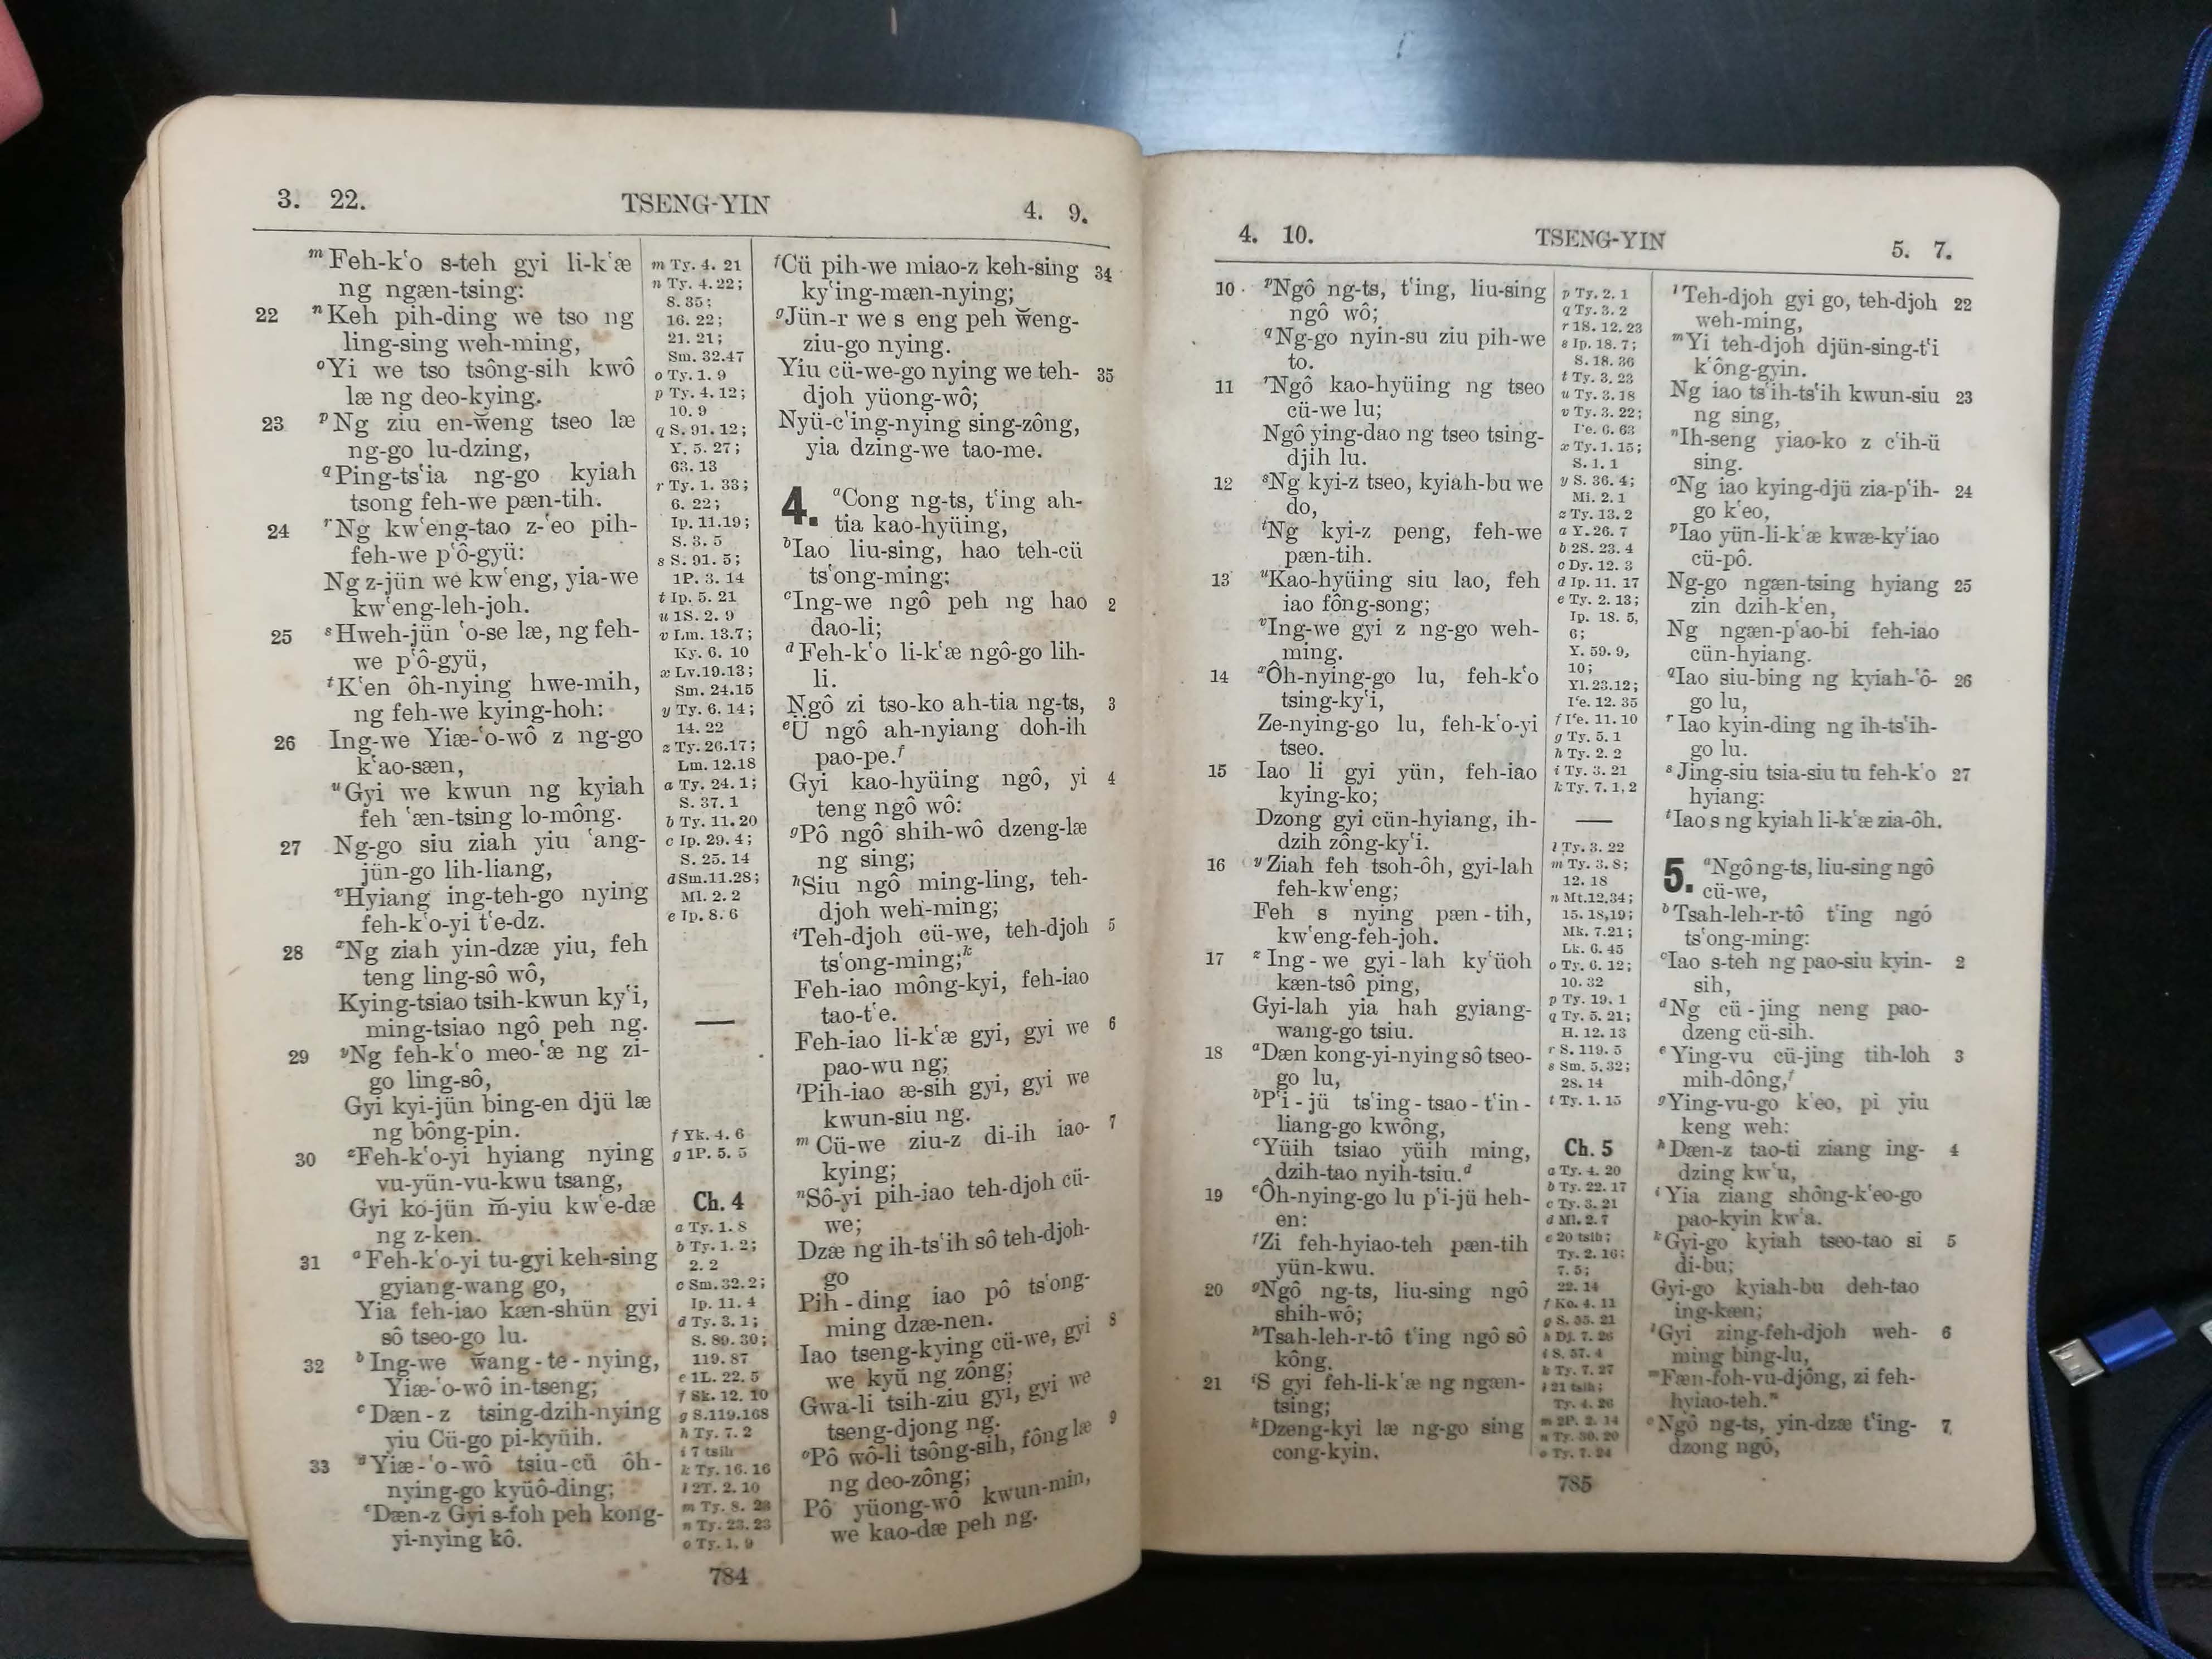 3. 22.
TSENG-YIN
4. 9.
m Feh-k‘o s-teh gyi li-k‘æ
ng ngæn-tsing:
22 n Keh pih-ding we tso ng
ling-sing weh-ming,
o Yi we tso tsông-sih kwô
læ ng deo-kying.
23 p Ng ziu en-w̆eng tseo læ
ng-go lu-dzing,
q Ping-ts‘ia ng-go kyiah
tsong feh-we pæn-tih.
24 r Ng kw‘eng-tao z-‘eo pih-
feh-we p‘ô-gyü:
Ng z-jün we kw‘eng, yia-we
kw‘eng-leh-joh.
25 s Hweh-jün ‘o-se læ, ng feh-
we p‘ô-gyü,
t K‘en ôh-nying hwe-mih,
ng feh-we kying-hoh:
26 Ing-we Yiæ-‘o-wô z ng-go
k‘ao-sæn,
u Gyi we kwun ng kyiah
feh ‘æn-tsing lo-mông.
27 Ng-go siu ziah yiu ‘ang-
jün-go lih-liang,
v Hyiang ing-teh-go nying
feh-k‘o-yi t‘e-dz.
28 x Ng ziah yin-dzæ yiu, feh
teng ling-sô wô,
Kying-tsiao tsih-kwun ky‘i,
ming-tsiao ngô peh ng.
29 y Ng feh-k‘o meo-‘æ ng zi-
go ling-sô,
Gyi kyi-jün bing-en djü læ
ng bông-pin.
30 z Feh-k‘o-yi hyiang nying
vu-yün-vu-kwu tsang,
Gyi ko-jün m̆-yiu kw‘e-dæ
ng z-ken.
31 a Feh-k‘o-yi tu-gyi keh-sing
gyiang-wang go,
Yia feh-iao kæn-shün gyi
sô tseo-go lu.
32 b Ing-we w̆ang-te-nying,
Yiæ-‘o-wô in-tseng;
c Dæn-z tsing-dzih-nying
yiu Cü-go pi-kyüih.
33 d Yiæ-‘o-wô tsiu-cü ôh-
nying-go kyüô-ding;
e Dæn-z Gyi s-foh peh kong-
yi-nying kô.
m Ty. 4. 21
n Ty. 4. 22;
S. 35;
16. 22;
21. 21;
Sm. 32.47
o Ty. 1. 9
p Ty. 4. 12;
10. 9
q S. 91. 12;
Y. 5. 27;
63. 13
r Ty. 1. 33;
6. 22;
Ip. 11.19;
S. 3. 5
s S. 91. 5;
1P. 3. 14
t Ip. 5. 21
u 1S. 2. 9
v Lm. 13.7;
Ky. 6. 10
x Lv.19.13;
Sm. 24.15
y Ty. 6. 14;
14. 22
z Ty. 26.17;
Lm. 12.18
a Ty. 24. 1;
S. 37. 1
b Ty. 11. 20
c Ip. 29. 4;
S. 25. 14
d Sm.11.28;
Ml. 2. 2
e Ip. 8. 6
f Yk. 4. 6
g 1P. 5. 5
Ch. 4
a Ty. 1. 8
b Ty. 1. 2;
2. 2
c Sm. 32. 2;
Ip. 11. 4
d Ty. 3. 1;
S. 89. 30;
119. 87
e 1L. 22. 5
f Sk. 12. 10
g S.119.168
h Ty. 7. 2
i 7 tsih
k Ty. 16. 16
l 2T. 2. 10
m Ty. 8. 23
n Ty. 23. 23
o Ty. 1. 9
f Cü pih-we miao-z keh-sing 34
ky‘ing-mæn-nying;
g Jün-r we s eng peh w̆eng-
ziu-go nying.
Yiu cü-we-go nying we teh- 35
djoh yüong-wô;
Nyü-c‘ing-nying sing-zông,
yia dzing-we tao-me.
4. a Cong ng-ts, t‘ing ah-
tia kao-hyüing,
b Iao liu-sing, hao teh-cü
ts‘ong-ming:
c Ing-we ngô peh ng hao 2
dao-li;
d Feh-k‘o li-k‘æ ngô-go lih-
li.
Ngô zi tso-ko ah-tia ng-ts, 3
e Ü ngô ah-nyiang doh-ih
pao-pe.f
Gyi kao-hyüing ngô, yi 4
teng ngô wô:
g Pô ngô shih-wô dzeng-læ
ng sing;
h Siu ngô ming-ling, teh-
djoh weh-ming;
i Teh-djoh cü-we, teh-djoh 5
ts‘ong-ming;k
Feh-iao mông-kyi, feh-iao
tao-t‘e.
Feh-iao li-k‘æ gyi, gyi we 6
pao-wu ng;
l Pih-iao æ-sih gyi, gyi we
kwun-siu ng.
m Cü-we ziu-z di-ih iao- 7
kying;
n Sô-yi pih-iao teh-djoh cü-
we;
Dzæ ng ih-ts‘ih sô teh-djoh-
go
Pih-ding iao pô ts‘ong-
ming dzæ-nen.
Iao tseng-kying cü-we, gyi 8
we kyü ng zông;
Gwa-li tsih-ziu gyi, gyi we
tseng-djong ng.
o Pô wô-li tsông-sih, fông læ 9
ng deo-zông;
Pô yüong-wô kwun-min,
we kao-dæ peh ng.
784
4. 10.
TSENG-YIN
5. 7.
10 p Ngô ng-ts, t‘ing, liu-sing
ngô wô;
q Ng-go nyin-su ziu pih-we
to.
11 r Ngô kao-hyüing ng tseo
cü-we lu;
Ngô ying-dao ng tseo tsing-
djih lu.
12 s Ng kyi-z tseo, kyiah-bu we
do,
t Ng kyi-z peng, feh-we
pæn-tih.
13 u Kao-hyüing siu lao, feh
iao fông-song;
v Ing-we gyi z ng-go weh-
ming.
14 x Ôh-nying-go lu, feh-k‘o
tsing-ky‘i,
Ze-nying-go lu, feh-k‘o-yi
tseo.
15 Iao li gyi yün, feh-iao
kying-ko;
Dzong gyi cün-hyiang, ih-
dzih zông-ky‘i.
16 y Ziah feh tsoh-ôh, gyi-lah
feh-kw‘eng;
Feh s nying pæn-tih,
kw‘eng-feh-joh.
17 z Ing-we gyi-lah ky‘üoh
kæn-tsô ping,
Gyi-lah yia hah gyiang-
wang-go tsiu.
18 a Dæn kong-yi-nying sô tseo-
go lu,
b P‘i-jü ts‘ing-tsao-t‘in-
liang-go kwông,
c Yüih tsiao yüih ming,
dzih-tao nyih-tsiu.d
19 e Ôh-nying-go lu p‘i-jü heh-
en:
f Zi feh-hyiao-teh pæn-tih
yün-kwu.
20 g Ngô ng-ts, liu-sing ngô
shih-wô;
h Tsah-leh-r-tô t‘ing ngô sô
kông.
21 i S gyi feh-li-k‘æ ng ngæn-
tsing;
k Dzeng-kyi læ ng-go sing
cong-kyin.
p Ty. 2. 1
q Ty. 3. 2
r 1S. 12. 23
s Ip. 18. 7;
S. 18. 36
t Ty. 3. 23
u Ty. 3. 18
v Ty. 3. 22;
I‘e. 6. 63
x Ty. 1. 15;
S. 1. 1
y S. 36. 4;
Mi. 2. 1
z Ty. 13. 2
a Y. 26. 7
b 2S. 23. 4
c Dy. 12. 3
d Ip. 11. 17
e Ty. 2. 13;
Ip. 18. 5,
6;
Y. 59. 9,
10;
Yl. 23.12;
I‘e. 12. 35
f I‘e. 11. 10
g Ty. 5. 1
h Ty. 2. 2
i Ty. 3. 21
k Ty. 7. 1, 2
l Ty. 3. 22
m Ty. 3. 8;
12. 18
n Mt.12.34;
15. 18,19;
Mk. 7.21;
Lk. 6. 45
o Ty. 6. 12;
10. 32
p Ty. 19. 1
q Ty. 5. 21;
H. 12. 13
r S. 119. 5
s Sm. 5. 32;
28. 14
t Ty. 1. 15
Ch. 5
a Ty. 4. 20
b Ty. 22. 17
c Ty. 3. 21
d Ml. 2. 7
e 20 tsih;
Ty. 2. 16;
7. 5;
22. 14
f Ko. 4. 11
g S. 55. 21
h Dj. 7. 26
i S. 57. 4
k Ty. 7. 27
l 21 tsih;
Ty. 4. 26
m 2P. 2. 14
n Ty. 30. 20
o Ty. 7. 24
l Teh-djoh gyi go, teh-djoh 22
weh-ming,
m Yi teh-djoh djün-sing-t‘i
k‘ông-gyin.
Ng iao ts‘ih-ts‘ih kwun-siu 23
ng sing,
n Ih-seng yiao-ko z c‘ih-ü
sing.
o Ng iao kying-djü zia-p‘ih- 24
go k‘eo,
p Iao yün-li-k‘æ kwæ-ky‘iao
cü-pô.
Ng-go ngæn-tsing hyiang 25
zin dzih-k‘en,
Ng ngæn-p‘ao-bi feh-iao
cün-hyiang.
q Iao siu-bing ng kyiah-‘ô- 26
go lu,
r Iao kyin-ding ng ih-ts‘ih-
go lu.
s Jing-siu tsia-siu tu feh-k‘o 27
hyiang:
t Iao s ng kyiah li-k‘æ zia-ôh.
5. a Ngô ng-ts, liu-sing ngô
cü-we,
b Tsah-leh-r-tô t‘ing ngô
ts‘ong-ming:
c Iao s-teh ng pao-siu kyin- 2
sih,
d Ng cü-jing neng pao-
dzeng cü-sih.
e Ying-vu cü-jing tih-loh 3
mih-dông,f
g Ying-vu-go k‘eo, pi yiu
keng weh:
h Dæn-z tao-ti ziang ing- 4
dzing kw‘u,
i Yia ziang shông-k‘eo-go
pao-kyin kw‘a.
k Gyi-go kyiah tseo-tao si 5
di-bu;
Gyi-go kyiah-bu deh-tao
ing-kæn;
l Gyi zing-feh-djoh weh- 6
ming bing-lu,
m Fæn-foh-vu-djông, zi feh-
hyiao-teh.n
o Ngô ng-ts, yin-dzæ t‘ing- 7
dzong ngô,
785